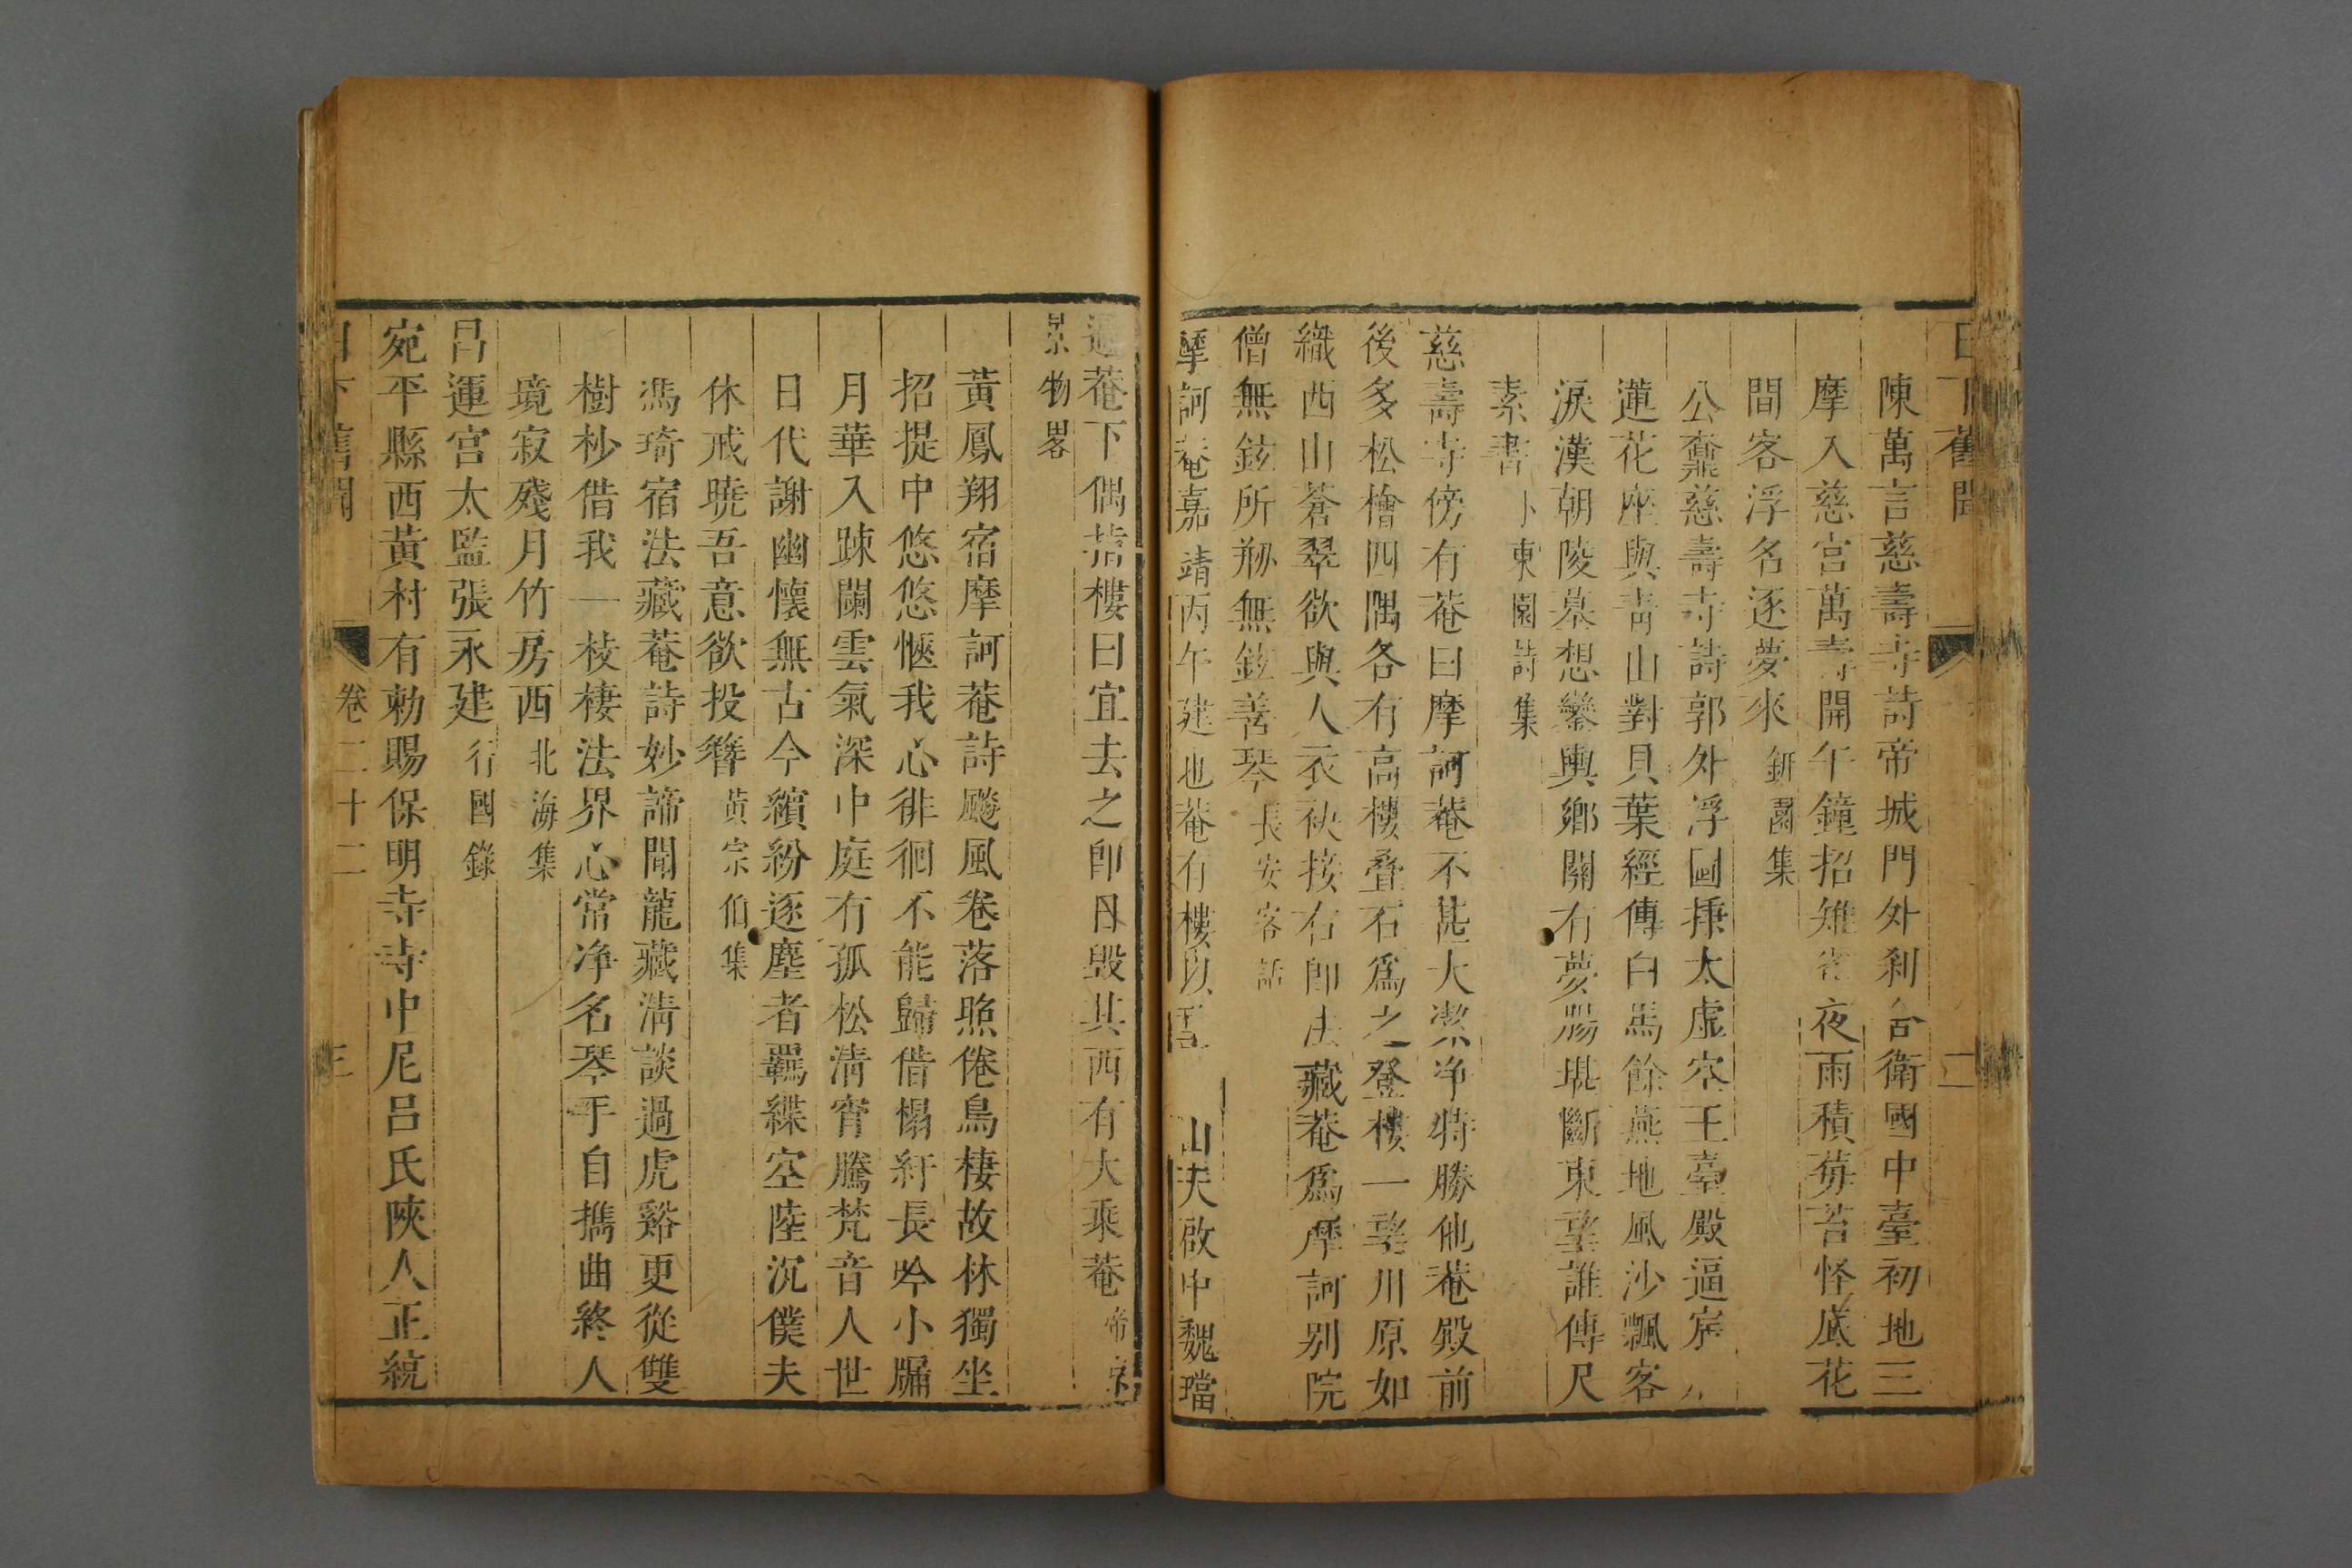 日下舊聞 二
陳萬言慈壽寺詩帝城門外刹合衛國中臺初地三
摩入慈宮萬壽開午鐘招雉雊夜雨積莓苔怪底花
間客浮名逐夢來 集
公鼐慈壽寺詩郭外浮圖揷太虛空王臺殿逼宸
蓮花座與靑山對貝葉經傳白馬餘燕地風沙飄客
淚漢朝陵墓想鑾輿鄉關有夢腸堪斷東望誰傳尺
素書 卜東園詩集
慈壽寺傍有菴曰摩訶菴不甚大潔净特勝他菴殿前
後多松檜四隅各有高樓疊石爲之登樓一望川原如
織西山蒼翠欲與人衣袂接右即法藏菴爲摩訶別院
僧無鉉所剏無鉉善琴 長安客話
摩訶菴嘉靖丙午建也菴有樓以望山天啟中魏璫
過菴下偶指樓曰宜去之卽日毀其西有大乘菴 帝京
景物畧
黃鳳翔宿摩訶菴詩飈風卷落照倦鳥棲故林獨坐
招提中悠悠愜我心徘徊不能歸借榻紆長吟小牖
月華入踈闌雲氣深中庭有孤松淸宵騰梵音人世
日代謝幽懷無古今繽紛逐塵者羈緤空陸沉僕夫
休戒曉吾意欲投簪 黃宗伯集
馮琦宿法藏菴詩妙諦聞龍藏淸談過虎谿更從雙
樹杪借我一枝棲法界心常净名琴手自攜曲終人
境寂殘月竹房西 北海集
昌運宮太監張永建 行國錄
宛平縣西黃村有勅賜保明寺寺中尼呂氏陝人正統
日下舊聞 卷二十二 三